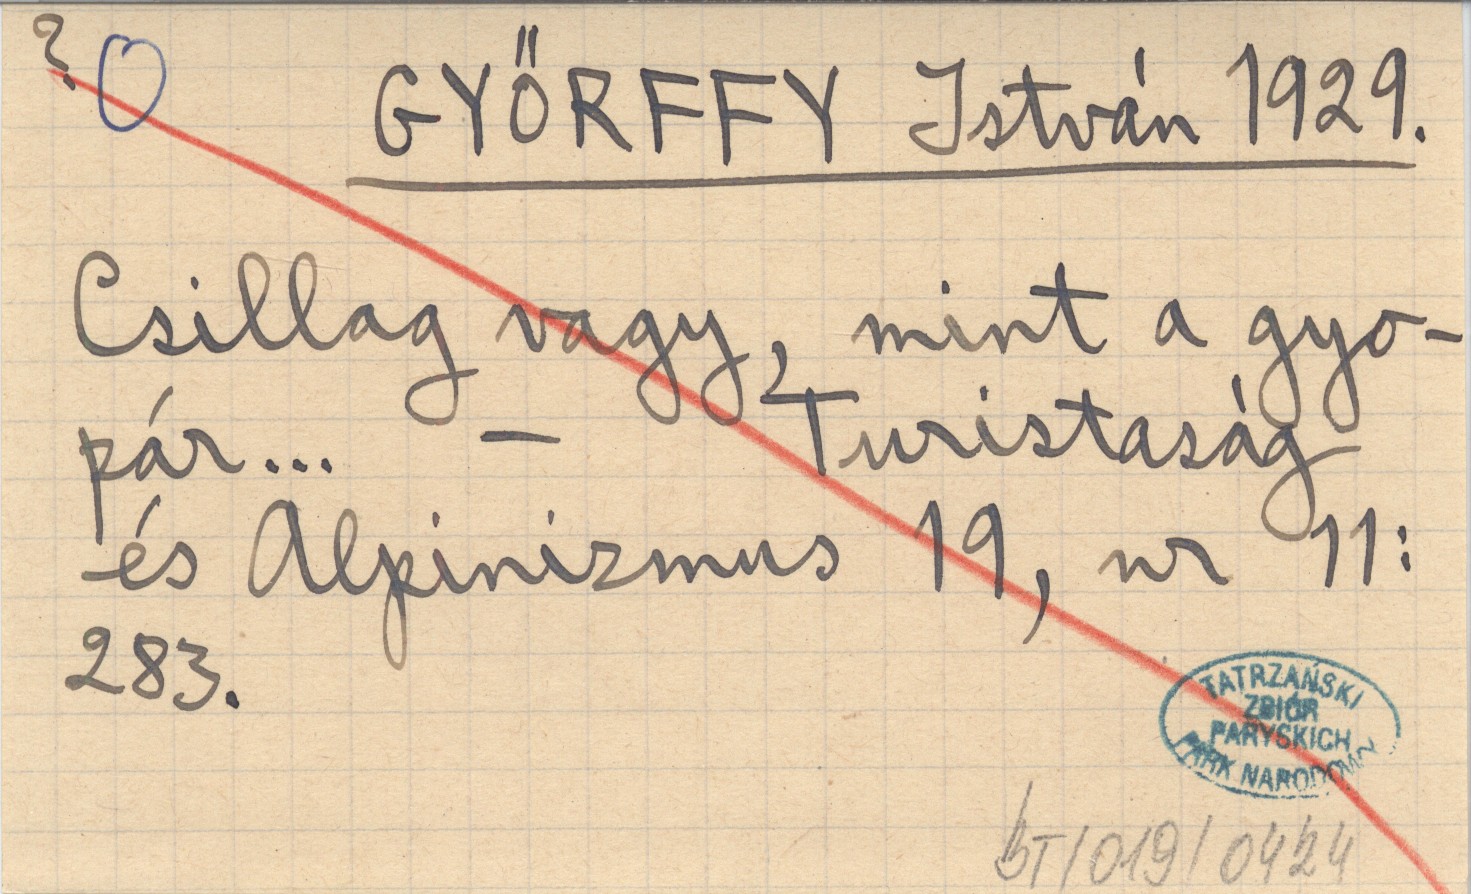 ?
GYŐRFFY István 1929.
Csillag vagy, mint a gyo-
pár... – Turistaság
és Alpinizmus 19, nr 11:
283.
TATRZAŃSKI
ZBIÓR
PARYSKICH
PARK NARODOWY
bT/019/0424